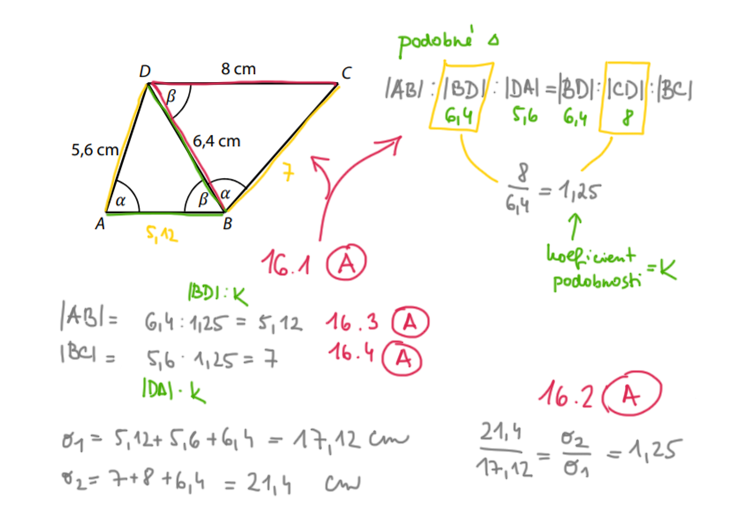 podobné Δ
D 8 cm C
β
|AB| : |BD| : |DA| = |BD| : |CD| : |BC|
6,4 5,6 6,4 8
5,6 cm 6,4 cm 7
α β α
A 5,12 B
8/6,4 = 1,25
koeficient podobnosti = K
16.1 A
|BD| : K
|AB| = 6,4 : 1,25 = 5,12 16.3 A
|BC| = 5,6 · 1,25 = 7 16.4 A
|DA| · K
16.2 A
σ1 = 5,12 + 5,6 + 6,4 = 17,12 cm
σ2 = 7 + 8 + 6,4 = 21,4 cm
21,4/17,12 = σ2/σ1 = 1,25